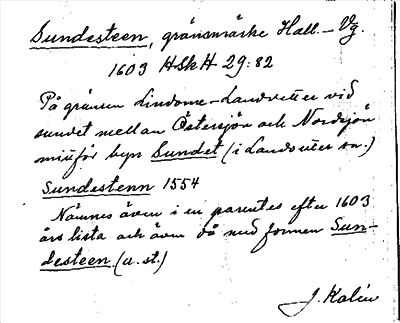 Sundesteen, gränsmärke Hall. – Vg.
1603 HSkH 29:82
På gränsen Lindome–Landvetter vid
sundet mellan Östersjön och Nordsjön
mitför byn Sundet (i Landvetter sn.)
Sundestenn 1554
Nämnes även i en parentes efter 1603
års lista och även då med formen Sun-
desteen (a. st.)
J. Kalén